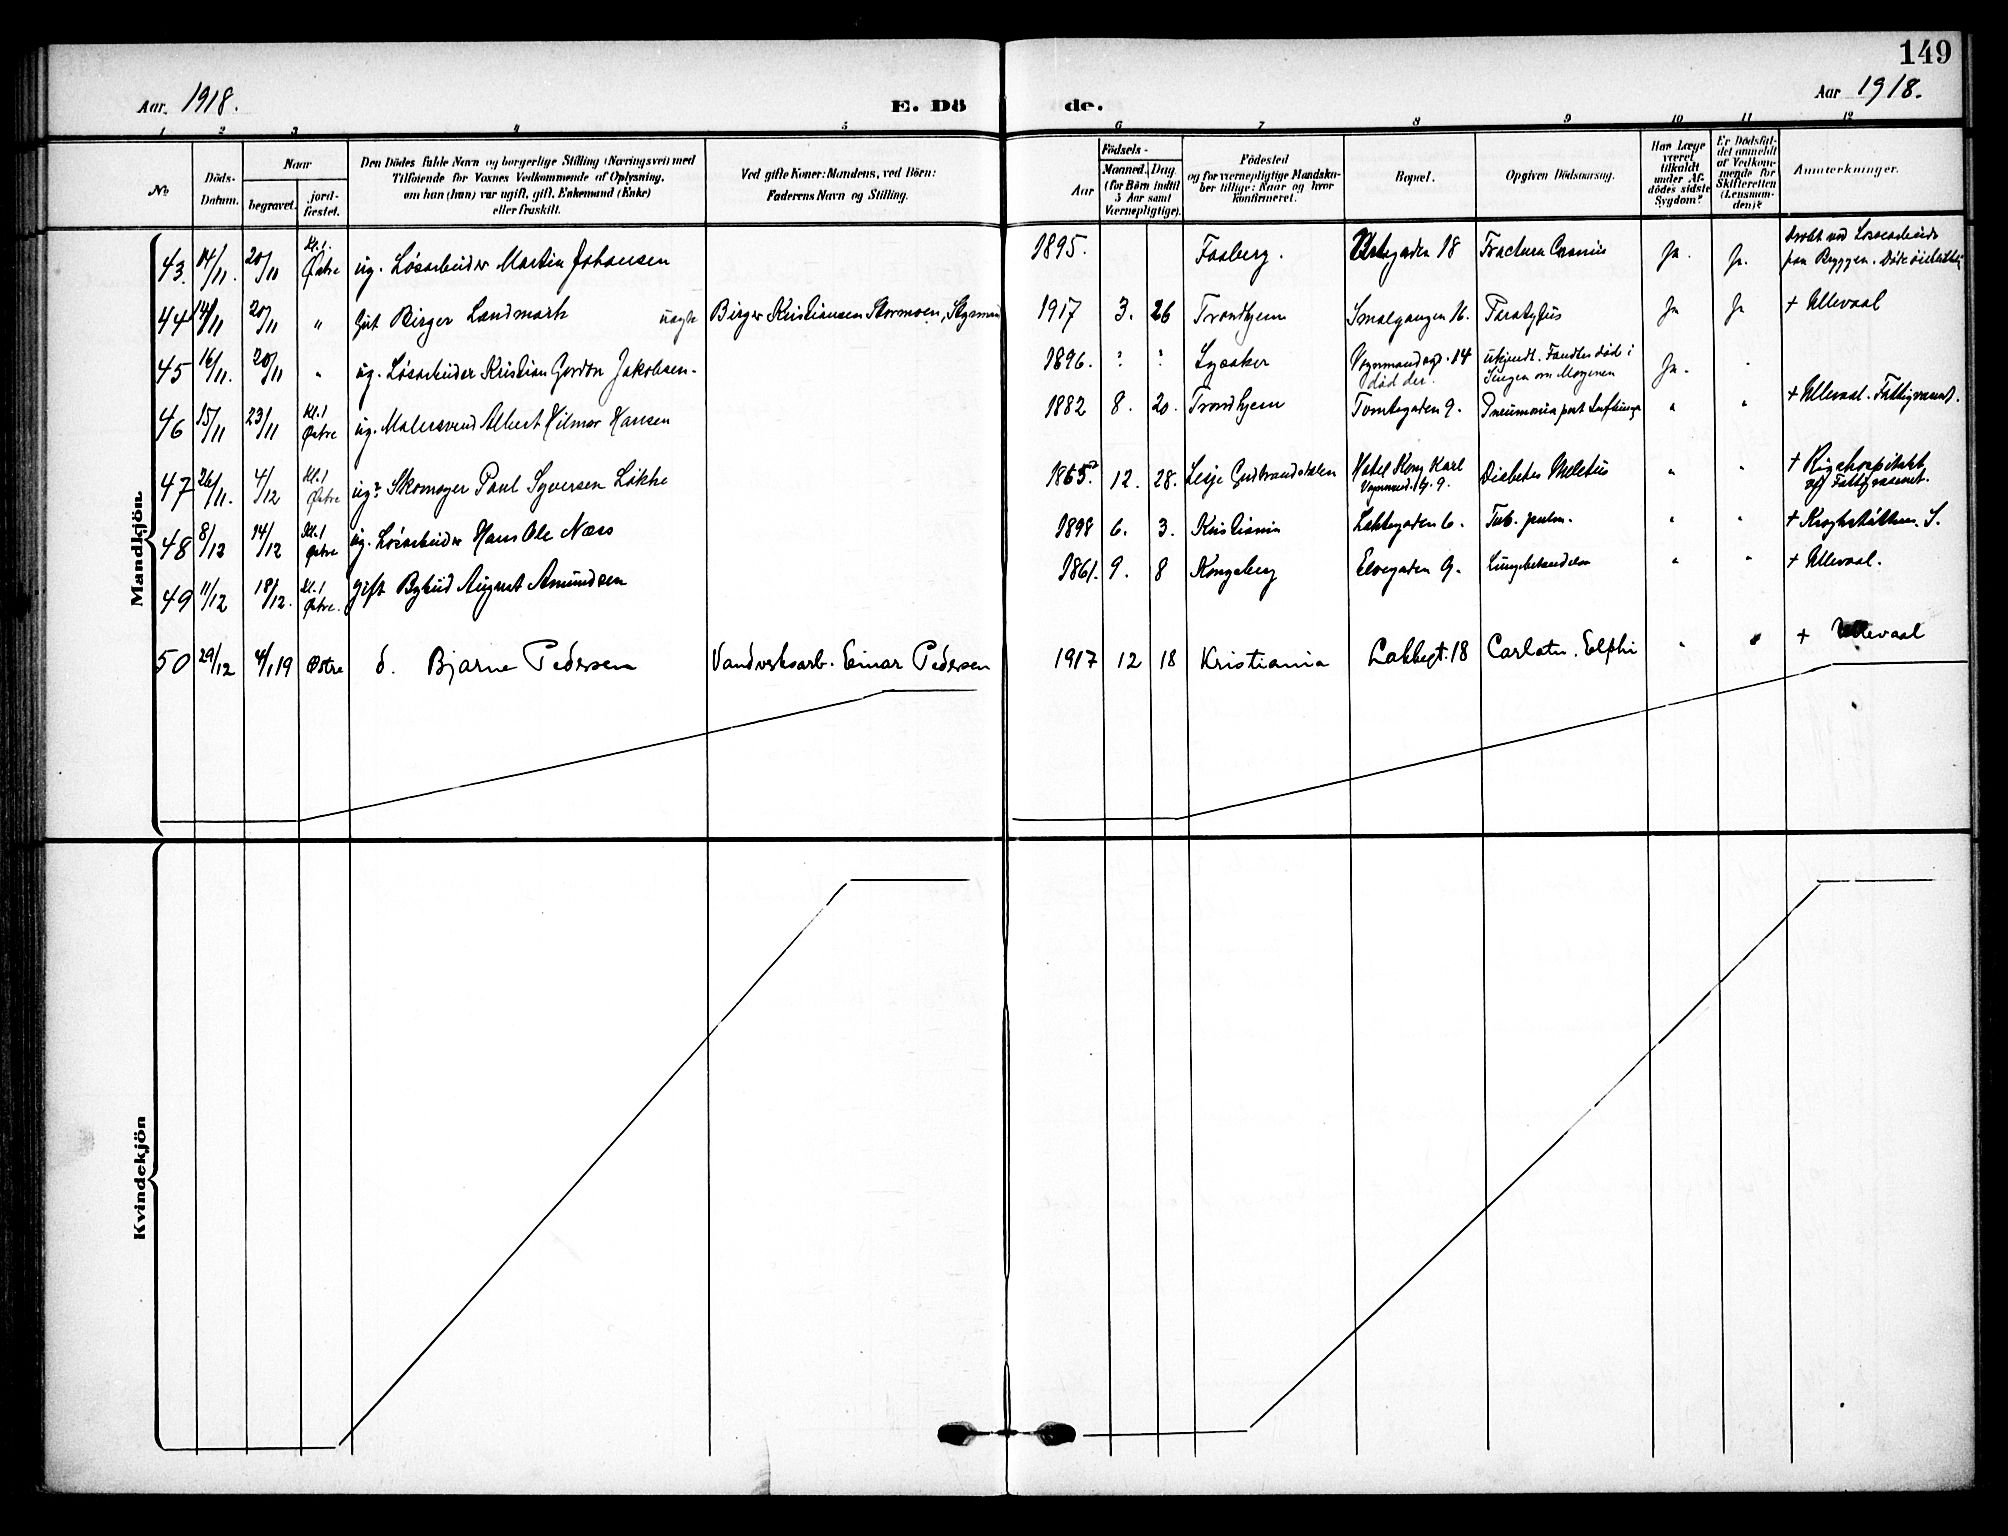 149
Aar 1918.
E. Dö de.
Aar 1918.
1 2 3 4 5 6 7 8 9 10 11 12
No
Döds-Datum.
Naar
begravet.
jord-fæstet.
Den Dödes fulde Navn og borgerlige Stilling (Næringsvei) med
Tilföiende for Voxnes Vedkommende af Oplysning,
om han (hun) var ugift, gift, Enkemand (Enke)
eller fraskilt.
Ved gifte Koner: Mandens, ved Börn:
Faderens Navn og Stilling.
Födsels-
Aar
Maaned. Dag
(for Börn indtil
5 Aar samt
Værnepligtige).
Födested
og for værnepligtige Mandska-
ber tillige: Naar og hvor
konfirmeret.
Bopæl.
Opgiven Dödsaarsag.
Har Læge
været
tilkaldt
under Af-
dödes sidste
Sygdom?
Er Dödsfal-
det anmeldt
af Vedkom-
mende for
Skifteretten
(Lensman-
den)?
Anmerkninger.
Mandkjön
43. 14/11. 20/11 Kl. 1. Østre ug. Løsarbeider Martin Johansen 1895. Faaberg. 18 Fractura Cranii Ja. Ja.
paa Bryggen.
44 14/11 20/11 " Gut Birger Landmark uægte Birger Kristiansen Stormoen, Styrmand 1917 3. 26 Trondhjem Smalgangen 16. Paratyfus Ja Ja + Ullevaal
45 16/11. 20/11 " ug. Løsarbeider Kristian Gordon Jakobsen. 1896. ? ? Lysaker Vognmandsgt. 14 død der. ukjendt. Fandtes død i Sengen om Morgenen Ja. "
46 15/11 23/11 Kl. 1 Østre ug. Malersvend Albert Hilmar Hansen 1882 8. 20. Trondhjem Tomtegaden 9. Pneumonia " " + Ullevaal. Fattigvæsnet.
47 26/11. 4/12 Kl. 1 Østre ug? Skomager Paul Syversen Løkke 1865? 12. 28. Lesje Gudbrandsdalen Hotel Kong Karl Vognmand. G. 9. Diabetes Meletus " " + Rigshospitalet
Fattigvæsenet.
48 8/12 14/12 Kl. 1 Østre ug. Løsarbeider Hans Ole Næss 1898 6. 3. Kristiania Lakkegaden 6. Tub. pulm. " " + Kroghstøtten. S.
49 11/12 18/12. Kl. 1 Østre. gift Bybud August Amundsen 1861. 9. 8 Kongsberg Elvegaden 9. Lungebetændelse " " + Ullevaal.
50 29/12 4/1 19 Østre d. Bjarne Pedersen Vandverksarb. Einar Pedersen 1917 12 18 Kristiania Lakkegt. 18 " " + Ullevaal
Kvindekjön